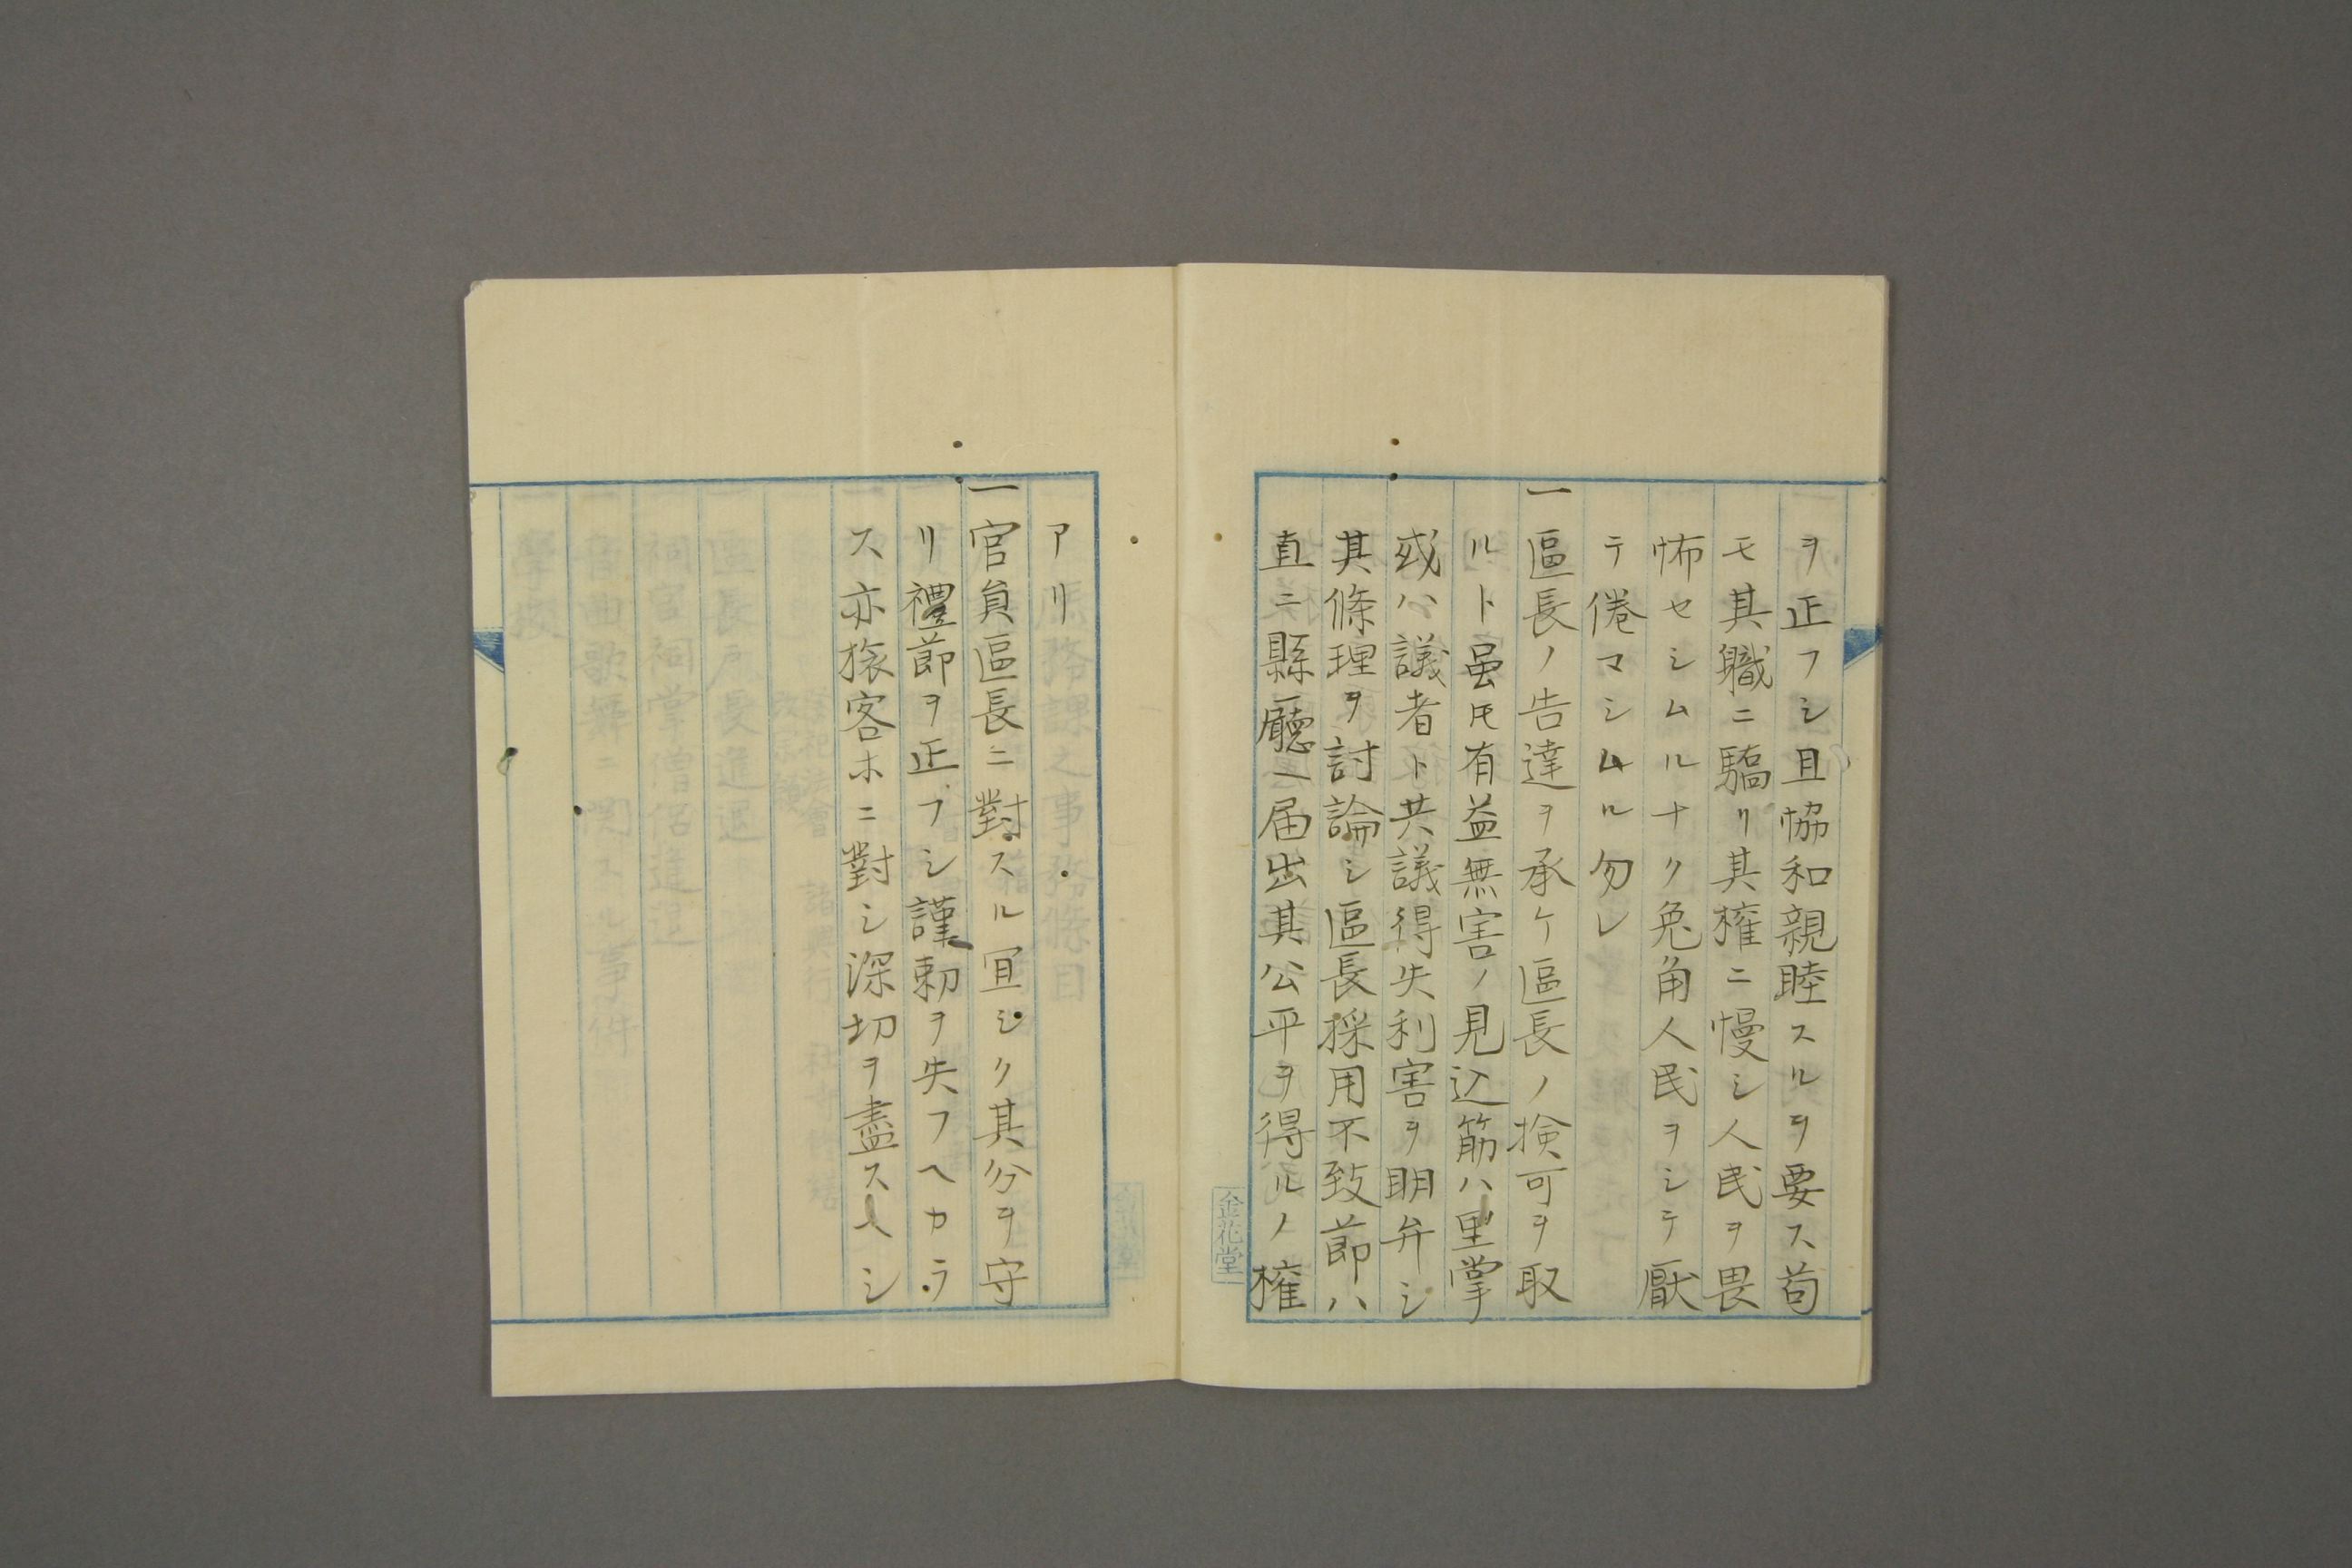 ヲ正フシ且協和親睦スルヲ要ス苟
モ其職ニ驕リ其権ニ慢シ人民ヲ畏
怖セシムルナク兔角人民ヲシテ厭
テ倦マシムル勿レ
一區長ノ告達ヲ承ケ區長ノ検可ヲ取
ルト虽𪜈有益無害ノ見込筋ハ里掌
或ハ議者ト共議得失利害ヲ明弁シ
其條理ヲ討論シ區長採用不致節ハ
直ニ縣廳ヘ届出其公平ヲ得ルノ権
金花堂
アリ
一官員區長ニ對スル冝シク其分ヲ守
リ禮節ヲ正フシ謹勅ヲ失フヘカラ
ス亦旅客ホニ對シ深切ヲ盡スヘシ